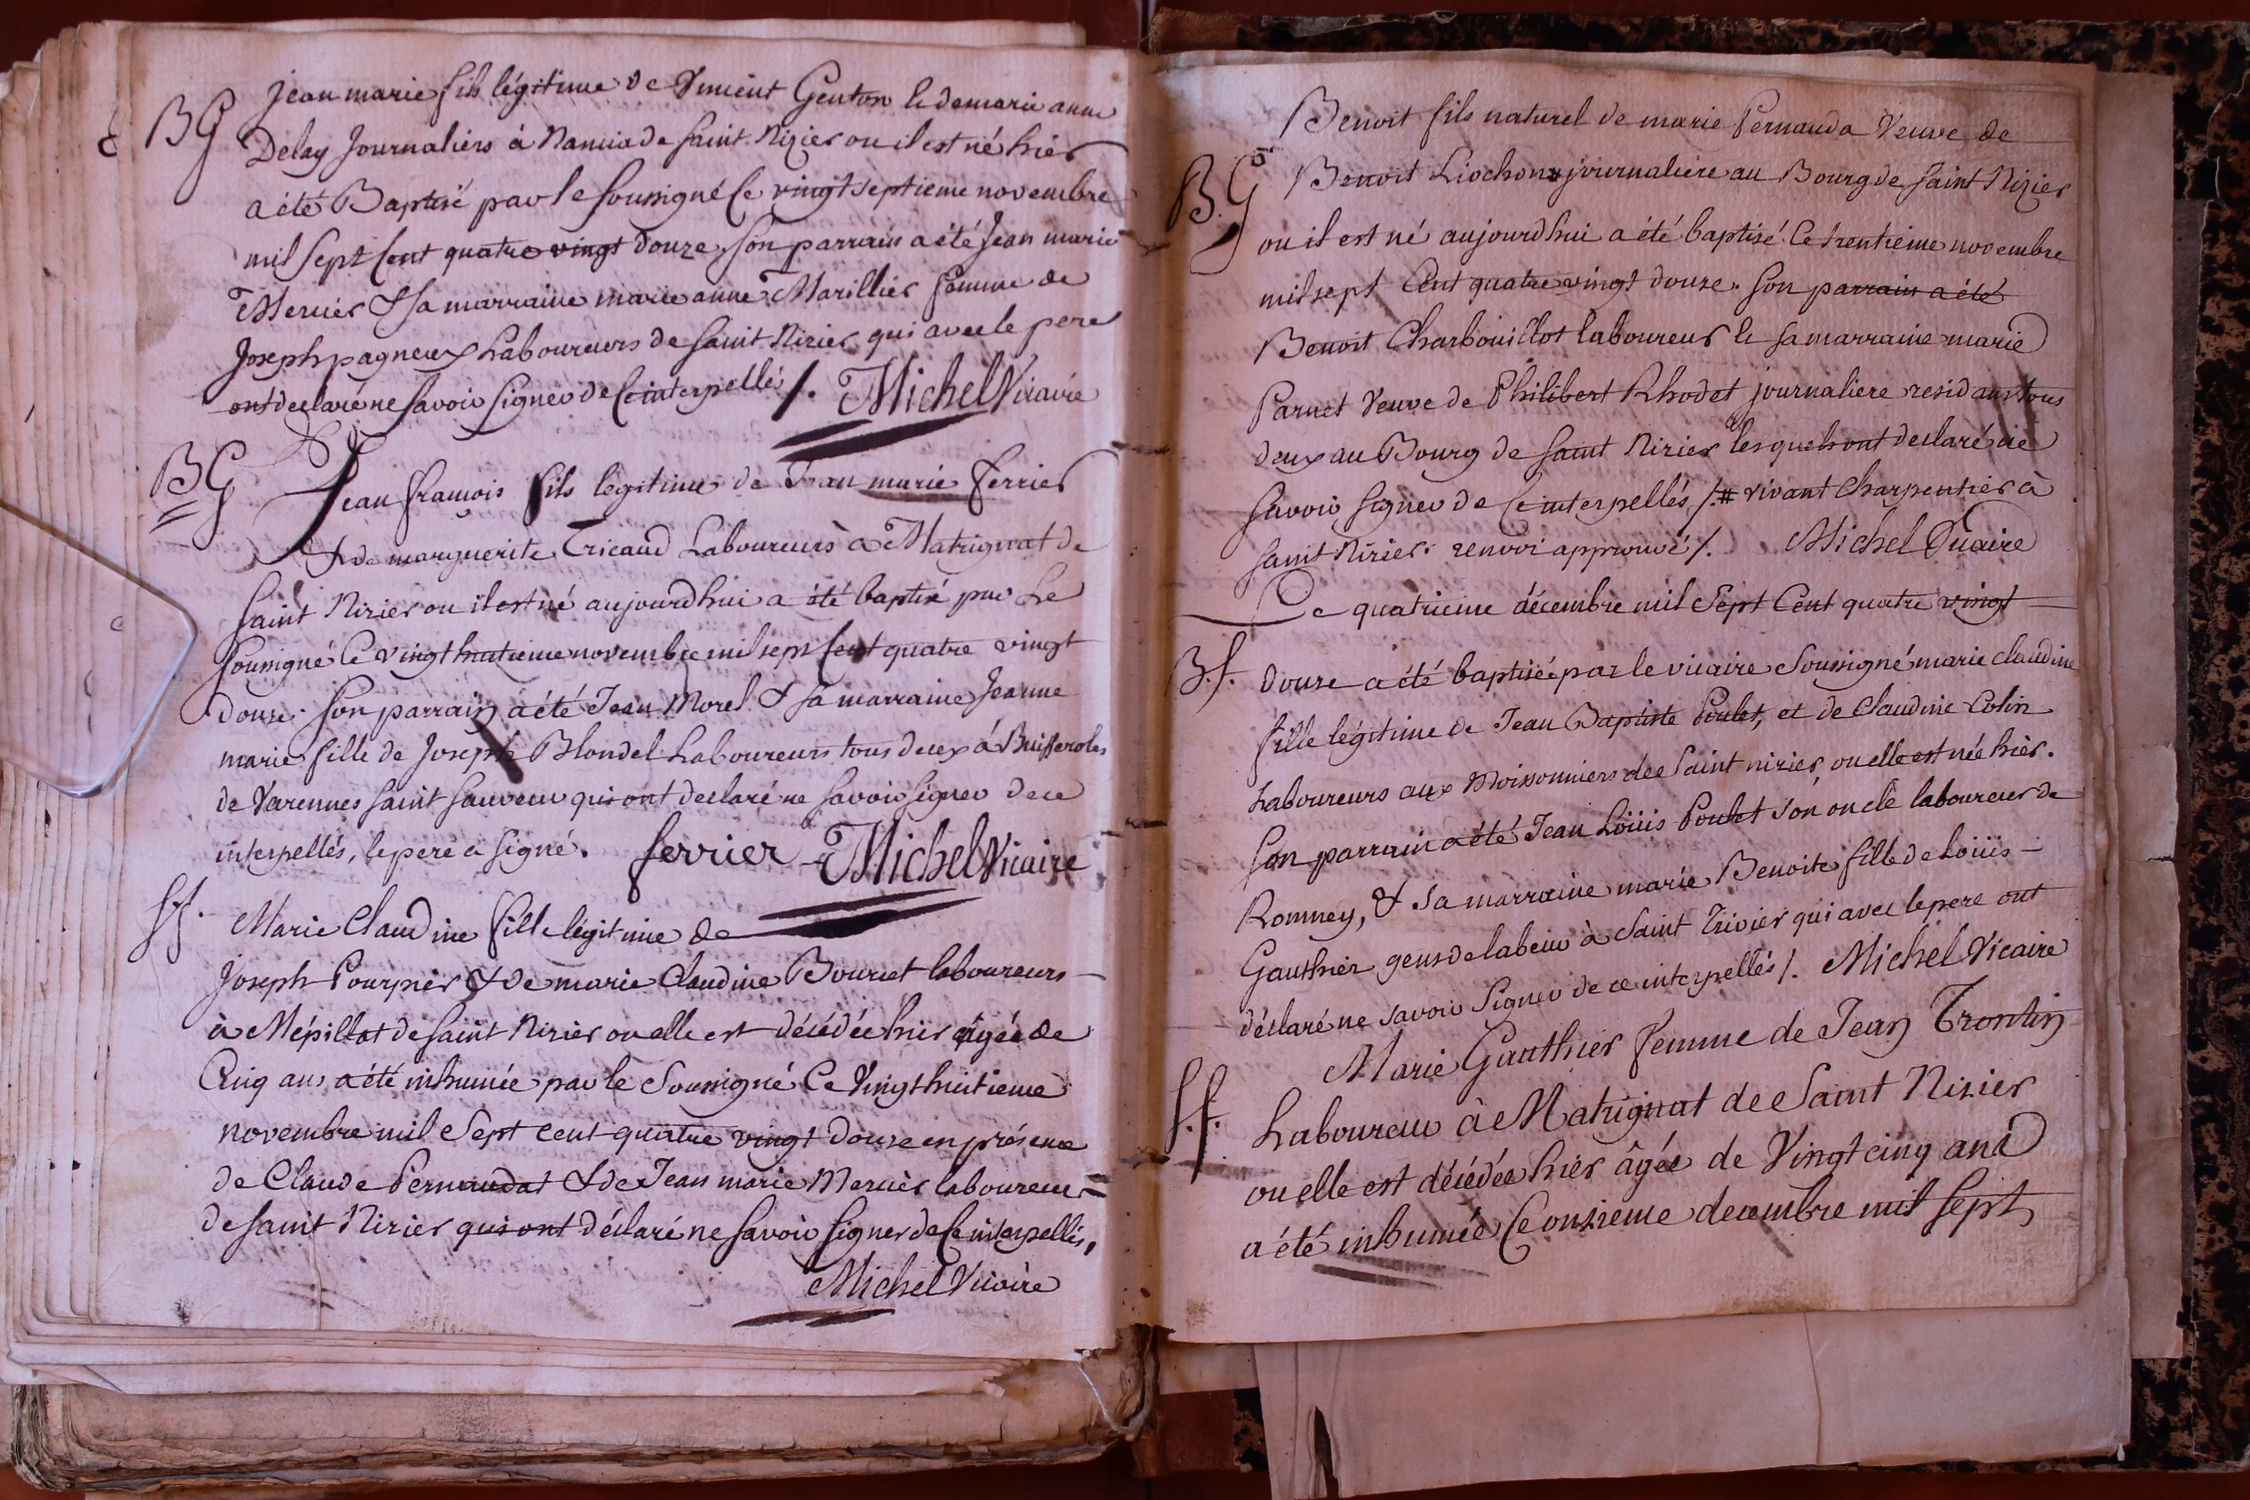 BG Jean marie fils légitime de Vincent Genton & de marie anne
Delay Journaliers à Nancia de Saint Nizier ou il est né hier
a été Baptisé par le soussigné Ce vingt septieme novembre
mil Sept Cent quatre vingt douze, son parrain a été Jean marie
Mercier & sa marraine marie anne Marillier femme de
Joseph pagneux Laboureurs de Saint Nizier qui avec le pere
ont declaré ne savoir signer de Ce interpellés /. Michel Vicaire
BG Jean françois fils legitime de Jean marie ferrier
& de marguerite Tricaud Laboureurs à Matrignat de
Saint Nizier ou il est né aujourdhui a été baptisé par Le
soussigné Ce vingt huitieme novembre mil sept Cent quatre vingt
douze. son parrain a été Jean Morel & sa marraine Jeanne
marie fille de Joseph Blondel Laboureurs tous deux à
de Varennes saint sauveur qui ont declaré ne savoir signer de ce
interpellés, le pere a signé. ferrier Michel Vicaire
S.f. Marie Claudine fille légitime de
Joseph Pourpier & de marie Claudine Bouret laboureurs
à Mépillat de Saint Nizier ou elle est décédée hier âgée de
Cinq ans a été inhumée par le Soussigné Ce Vingt huitieme
novembre mil Sept cent quatre vingt douze en présence
de Claude Pernaudat & de Jean marie Mercier laboureurs
de Saint Nizier qui ont déclaré ne savoir signer de Ce interpellés,
Michel Vicaire
Benoit fils naturel de marie Pernauda Veuve de
B.G. Benoit Liochon # journaliere au Bourg de Saint Nizier
ou il est né aujourdhui a été baptisé Ce trentieme novembre
mil sept Cent quatre vingt douze. son parrain a été
Benoit Charbouillot laboureur & sa marraine marie
Parnet Veuve de Philibert Rhodet journaliere residans tous
deux au Bourg de Saint Nizier lesquels ont declaré ne
savoir signer de Ce interpellés /. # vivant Charpentier à
Saint Nizier. renvoi approuvé /. Michel Vicaire
Ce quatrieme décembre mil Sept Cent quatre vingt
B.f. douze a été baptisée par le vicaire soussigné marie claudine
fille légitime de Jean Baptiste Poulet, et de Claudine Colin
Laboureurs aux Moissonniers de Saint nizier, ou elle est née hier.
Son parrain a été Jean Loüis Poulet son oncle laboureur de
Romney, & sa marraine marie Benoite fille de Loüis
Gauthier gens de labeur à Saint Trivier qui avec le pere ont
déclaré ne savoir signer de ce interpellés /. Michel Vicaire
Marie Gauthier femme de Jean Trontin
S.f. Laboureur à Matrignat de Saint Nizier
ou elle est décédée hier âgée de Vingt cinq ans
a été inhumée Ce onzieme decembre mil Sept